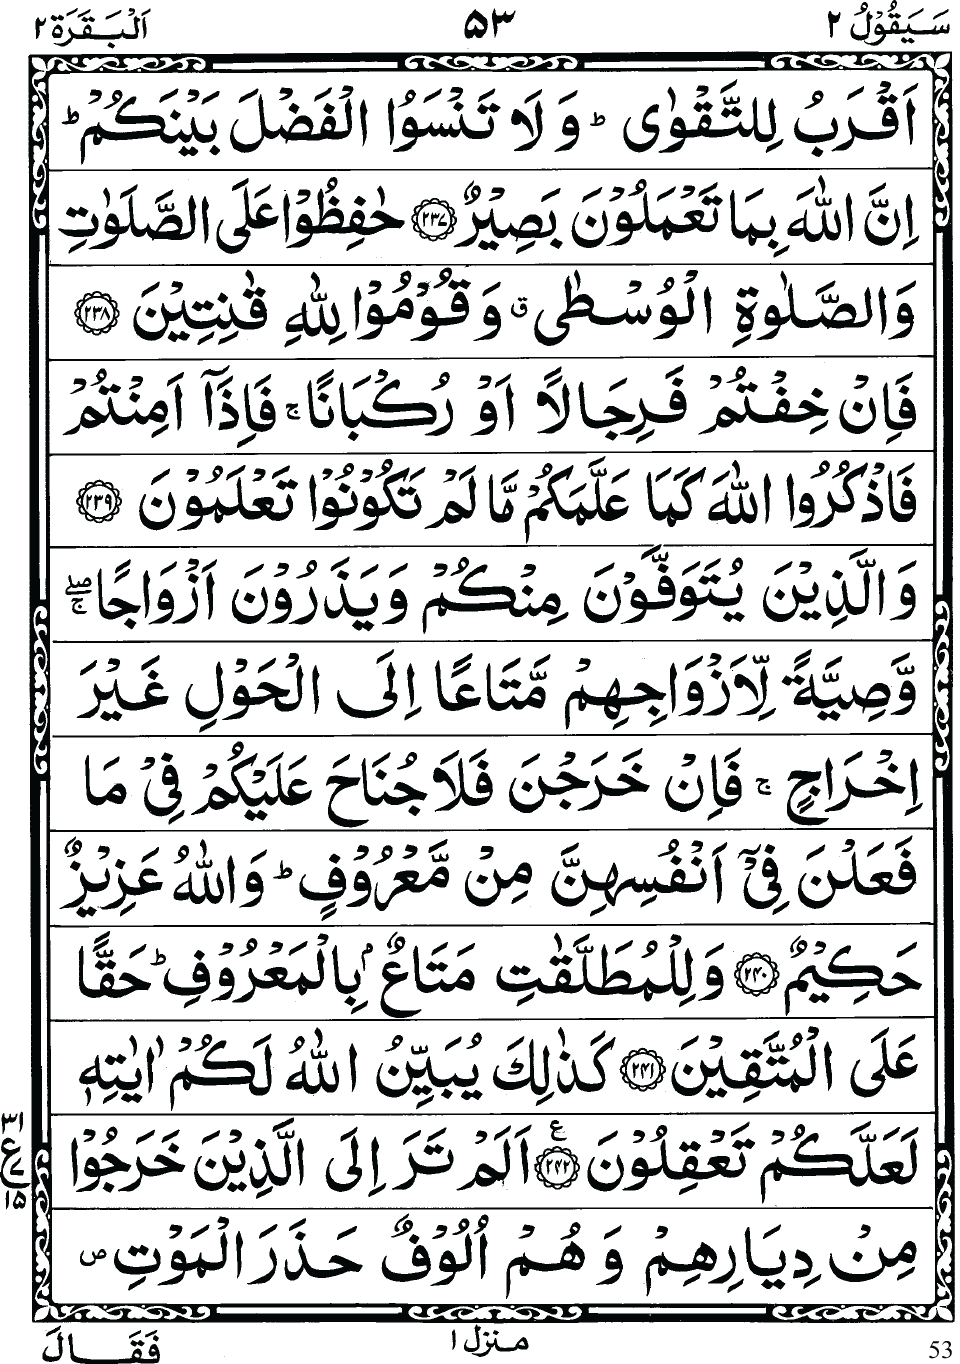 سَيَقُوْلُ ٢ ٥٣ اَلْبَقَرَة ٢
اَقْرَبُ لِلتَّقْوٰى ؕ وَ لَا تَنْسَوُا الْفَضْلَ بَيْنَكُمْ ؕ
اِنَّ اللّٰهَ بِمَا تَعْمَلُوْنَ بَصِيْرٌ ﴿۲۳۷﴾ حٰفِظُوْا عَلَى الصَّلَوٰتِ
وَالصَّلٰوةِ الْوُسْطٰى ۗ وَ قُوْمُوْا لِلّٰهِ قٰنِتِيْنَ ﴿۲۳۸﴾
فَاِنْ خِفْتُمْ فَرِجَالًا اَوْ رُكْبَانًا ۚ فَاِذَاۤ اَمِنْتُمْ
فَاذْكُرُوا اللّٰهَ كَمَا عَلَّمَكُمْ مَّا لَمْ تَكُوْنُوْا تَعْلَمُوْنَ ﴿۲۳۹﴾
وَالَّذِيْنَ يُتَوَفَّوْنَ مِنْكُمْ وَيَذَرُوْنَ اَزْوَاجًا ۖۚ
وَّصِيَّةً لِّاَزْوَاجِهِمْ مَّتَاعًا اِلَى الْحَوْلِ غَيْرَ
اِخْرَاجٍ ۚ فَاِنْ خَرَجْنَ فَلَا جُنَاحَ عَلَيْكُمْ فِىْ مَا
فَعَلْنَ فِىْۤ اَنْفُسِهِنَّ مِنْ مَّعْرُوْفٍ ؕ وَاللّٰهُ عَزِيْزٌ
حَكِيْمٌ ﴿۲۴۰﴾ وَلِلْمُطَلَّقٰتِ مَتَاعٌ ۢ بِالْمَعْرُوْفِ ؕ حَقًّا
عَلَى الْمُتَّقِيْنَ ﴿۲۴۱﴾ كَذٰلِكَ يُبَيِّنُ اللّٰهُ لَكُمْ اٰيٰتِهٖ
لَعَلَّكُمْ تَعْقِلُوْنَ ﴿۲۴۲﴾ ع اَلَمْ تَرَ اِلَى الَّذِيْنَ خَرَجُوْا
٣١
ع
٧
١٥
مِنْ دِيَارِهِمْ وَ هُمْ اُلُوْفٌ حَذَرَ الْمَوْتِ ص
فَقَالَ منزل ١ 53